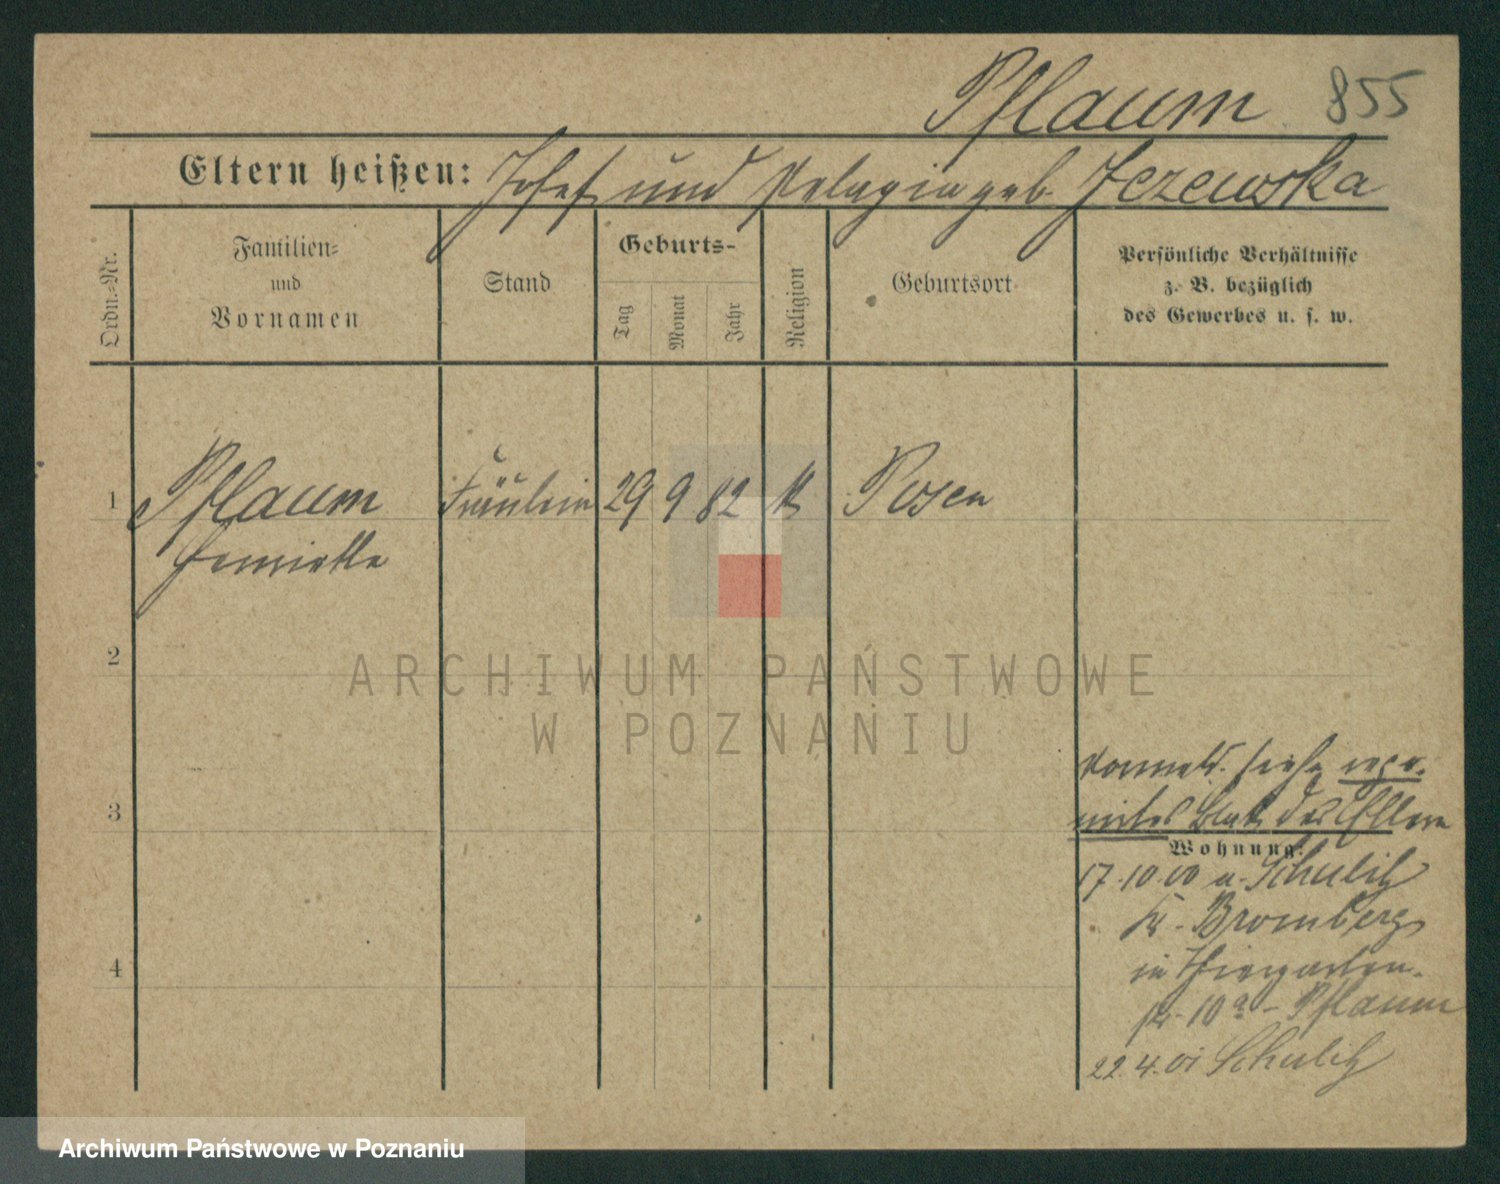 Pflaum 855
Eltern heißen: Josef und Pelagia geb. Jezewska
Ordn.-Nr.
Familien-
und
Vornamen
Stand
Geburts-
Tag
Monat
Jahr
Religion
Geburtsort
Persönliche Verhältnisse
z. B. bezüglich
des Gewerbes u. s. w.
1 Pflaum Fräulein 29 9 82 k Posen
Henriette
2
ARCHIWUM PAŃSTWOWE
W POZNANIU
siehe
3
Blatt der Eltern
Wohnung:
17.10.00 n. Schulitz
Kr. Bromberg
4 in Thiergarten.
10a - Pflaum
22.4.01 Schulitz
Archiwum Państwowe w Poznaniu